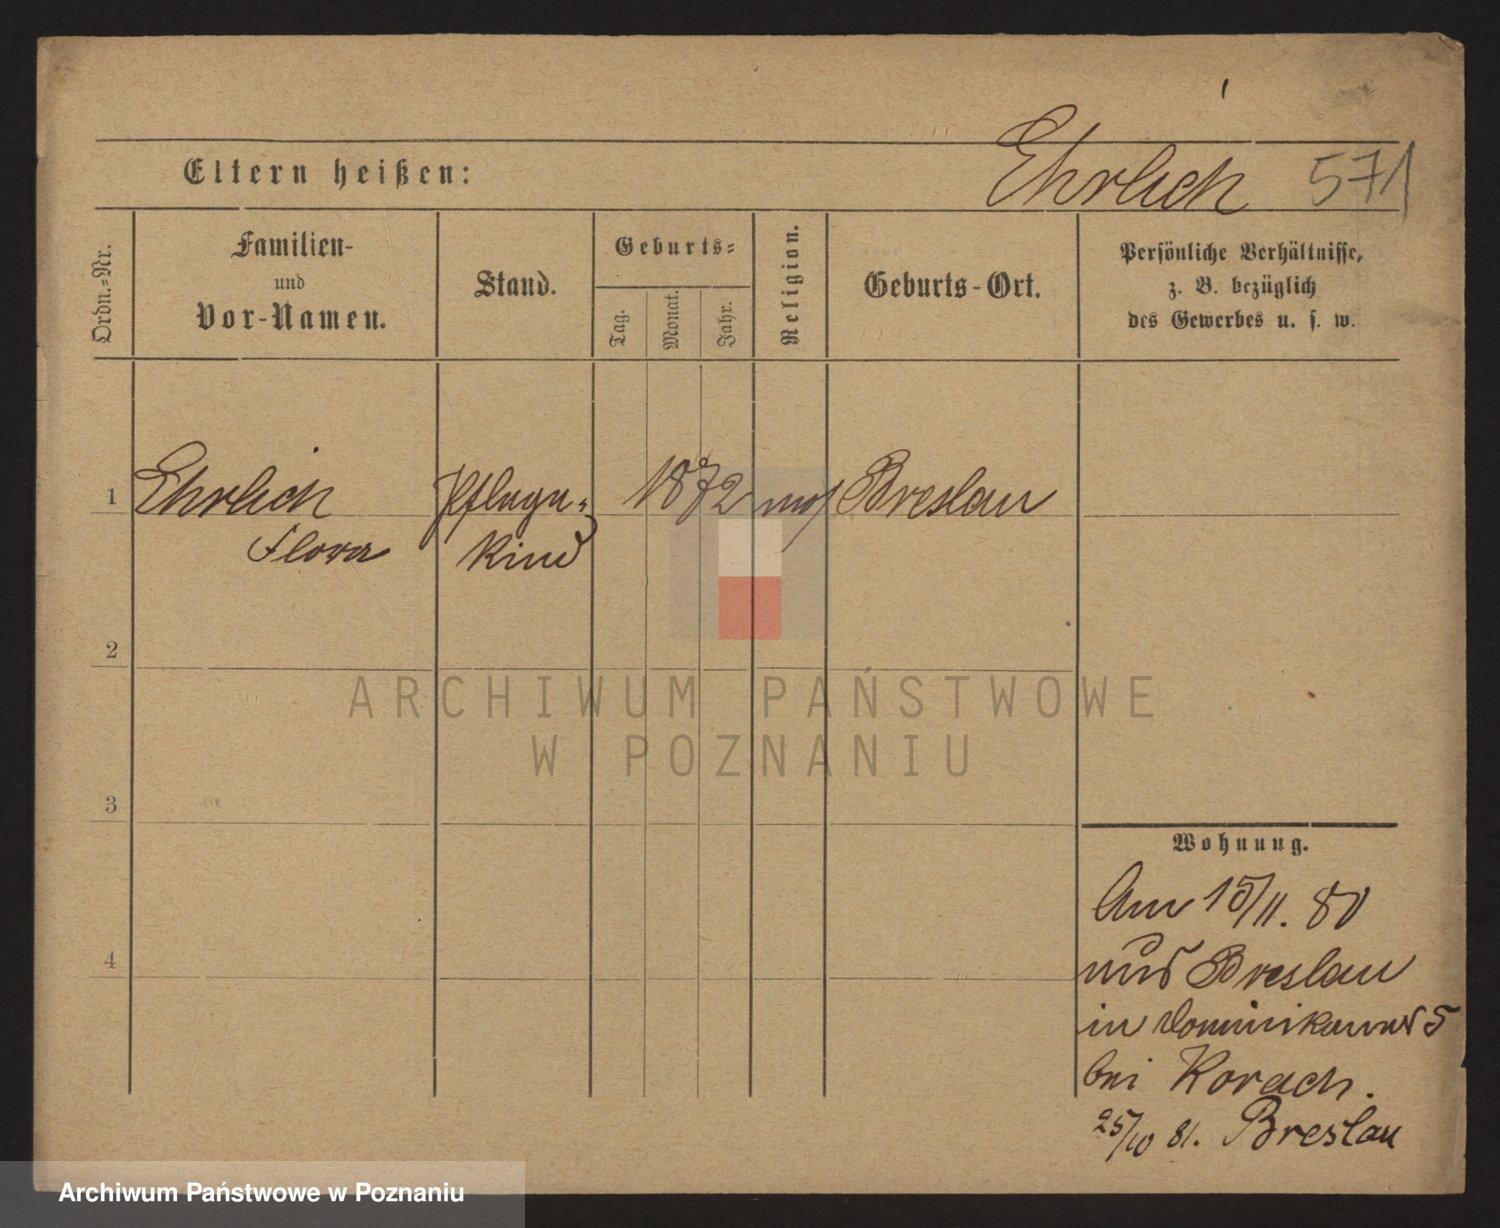 Ehrlich 571
Eltern heißen:
Ordn.=Nr.
Familien-
und
Vor-Namen.
Stand.
Geburts=
Tag.
Monat.
Jahr.
Religion.
Geburts-Ort.
Persönliche Verhältnisse,
z. B. bezüglich
des Gewerbes u. s. w.
1 Ehrlich Pflege= 1872 mos Breslau
Flora kind
2
3
4
Wohnung.
Am 15/11. 80
aus Breslau
in Dominikaner 5
bei Korach.
25/10 81. Breslau
ARCHIWUM PAŃSTWOWE
W POZNANIU
Archiwum Państwowe w Poznaniu